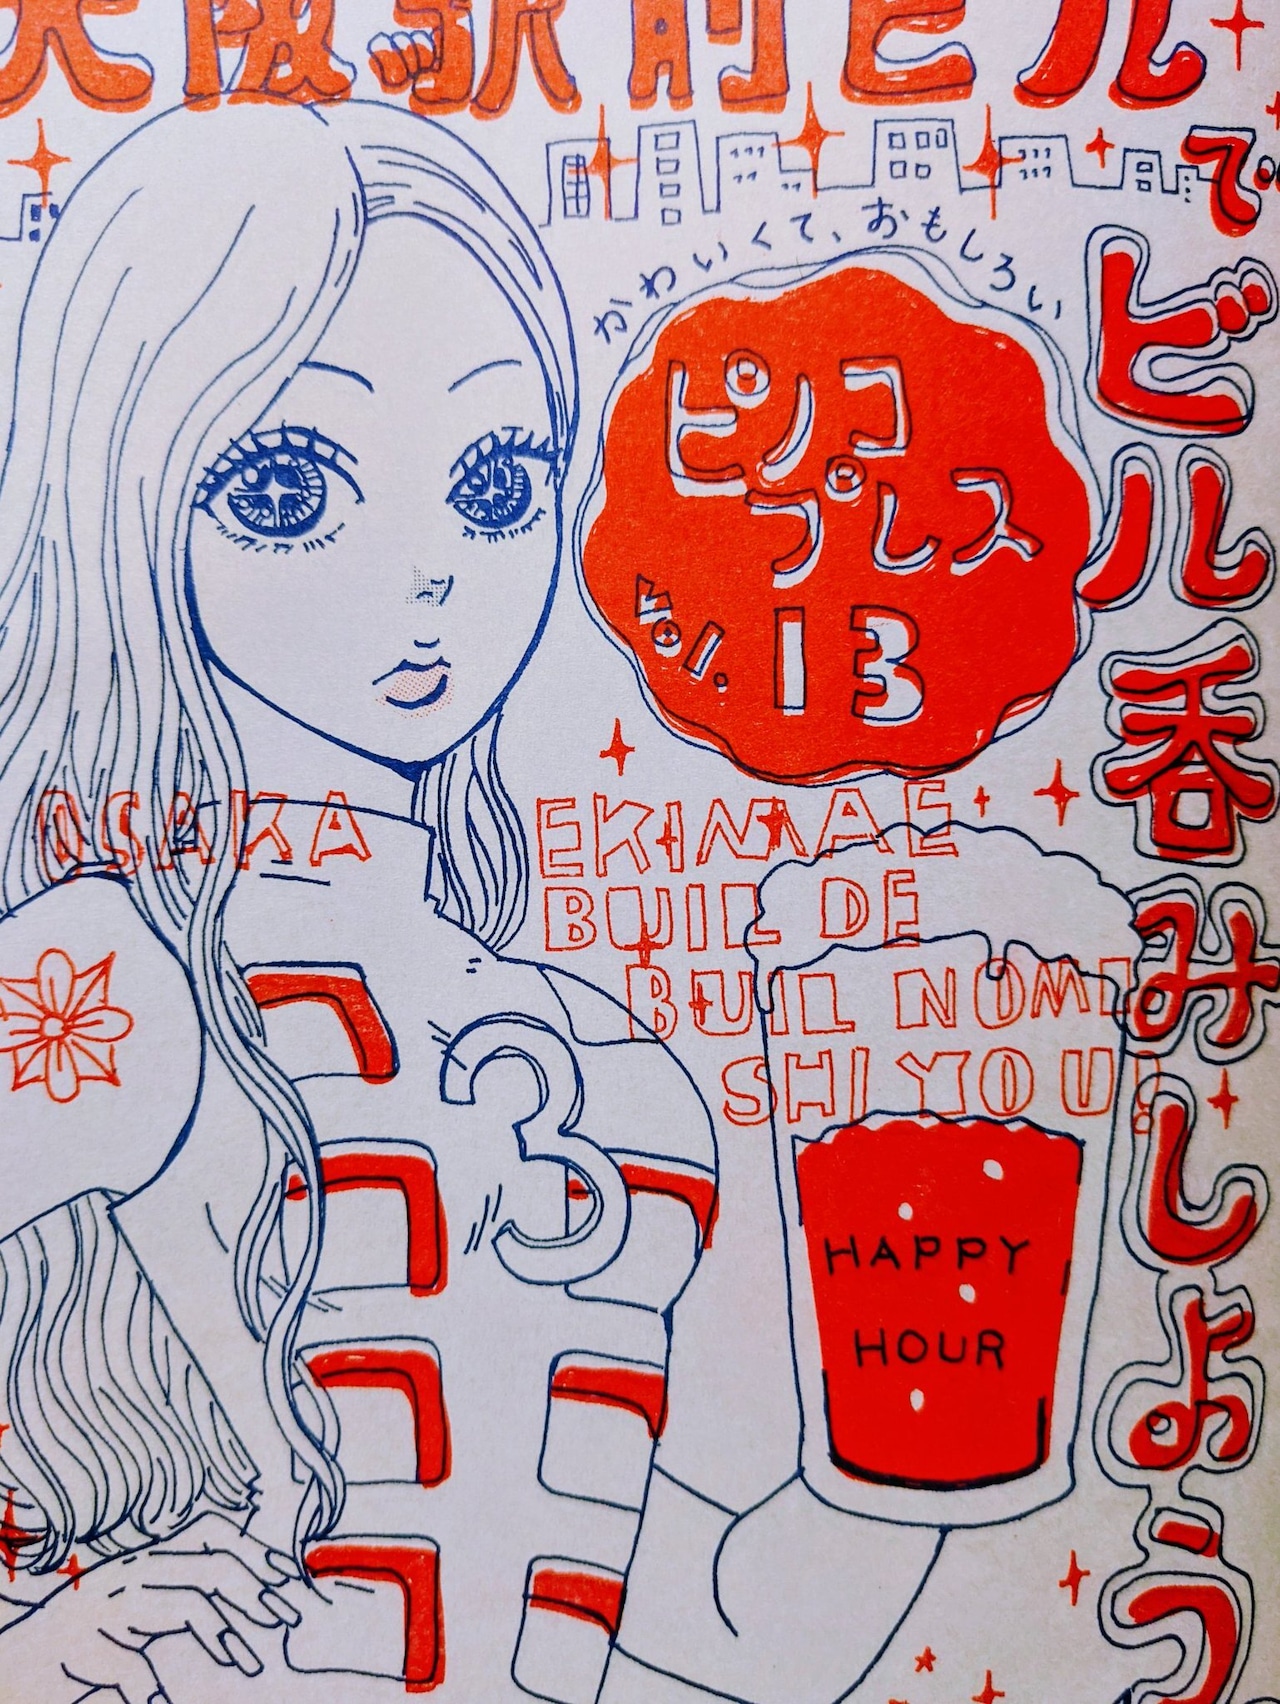 大阪駅前ビル
で
ビル呑みしよう
かわいくて、おもしろい
ピノコ
プレス
vol. 13
OSAKA EKIMAE
BUIL DE
BUIL NOMI
SHIYOU!
3
HAPPY
HOUR